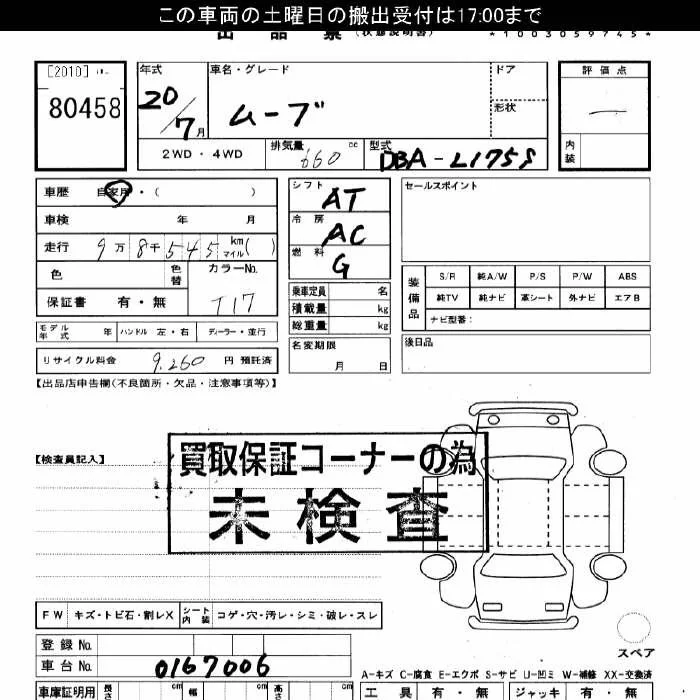 この車両の土曜日の搬出受付は17:00まで
出品票 (状態説明書)
*1003059745*
[2010]
80458
年式 車名・グレード ドア 評価点
20/7月 ムーブ 形状
2WD・4WD 排気量 660 cc 型式 DBA-L175S 内装
車歴 自家用・( )
シフト AT
セールスポイント
車検 年 月
冷房 AC
走行 9万8千545 km マイル( )
燃料 G
色 色替 カラーNo. T17
装備品 S/R 純A/W P/S P/W ABS
乗車定員 名
純TV 純ナビ 革シート 外ナビ エアB
保証書 有・無
積載量 kg
ナビ型番:
総重量 kg
モデル年式 年 ハンドル 左・右 ディーラー・並行
名変期限 月 日
後日品
リサイクル料金 9,260 円 預託済
【出品店申告欄(不良箇所・欠品・注意事項等)】
【検査員記入】
買取保証コーナーの為
未検査
FW キズ・トビ石・割レX シート内装 コゲ・穴・汚レ・シミ・破レ・スレ
スペア
登録No.
車台No. 0167006
A-キズ C-腐食 E-エクボ S-サビ U-凹ミ W-補修 XX-交換済
車庫証明用 長さ cm 幅 cm 高さ cm
工具 有・無 ジャッキ 有・無